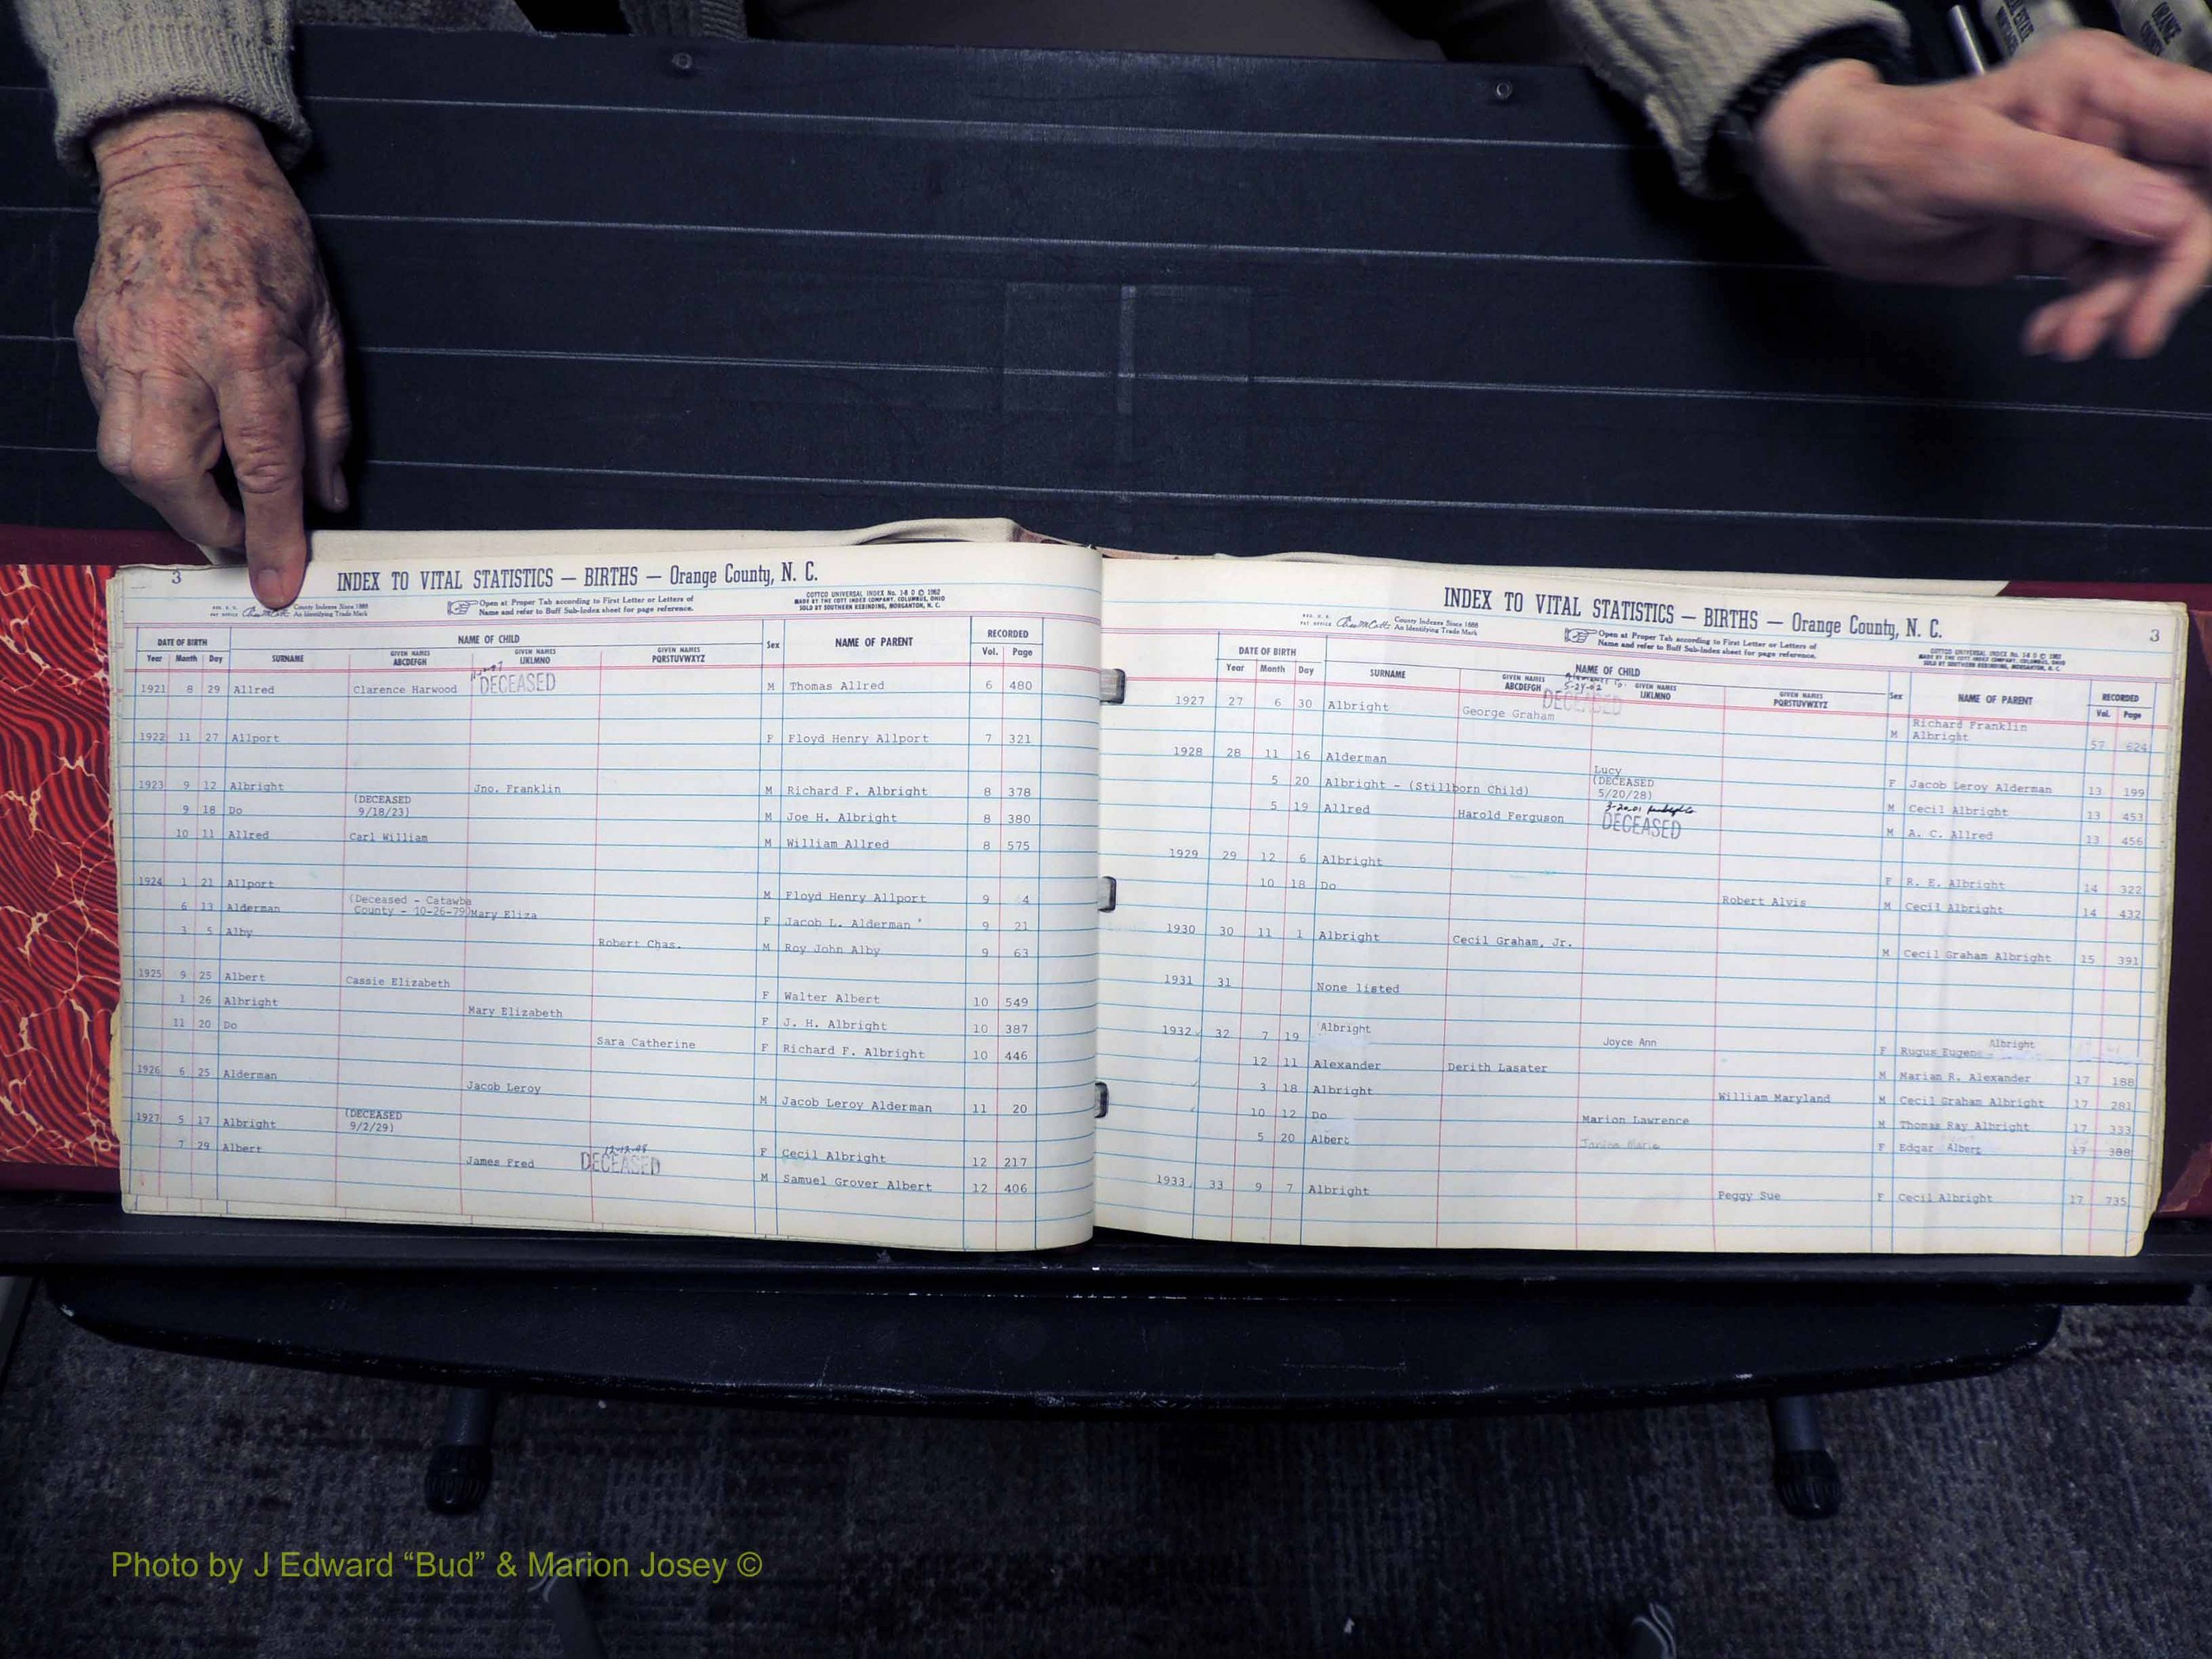 ORANGE
3
INDEX TO VITAL STATISTICS — BIRTHS — Orange County, N. C.
County Indexes Since 1888
An Identifying Trade Mark
Open at Proper Tab according to First Letter or Letters of
Name and refer to Buff Sub-Index sheet for page reference.
COTTCO UNIVERSAL INDEX No. 1-8 D © 1962
MADE BY THE COTT INDEX COMPANY, COLUMBUS, OHIO
SOLD BY SOUTHERN REBINDING, MORGANTON, N. C.
DATE OF BIRTH NAME OF CHILD Sex NAME OF PARENT RECORDED
Year Month Day SURNAME GIVEN NAMES ABCDEFGH GIVEN NAMES IJKLMNO GIVEN NAMES PQRSTUVWXYZ Vol. Page
1921 8 29 Allred Clarence Harwood DECEASED M Thomas Allred 6 480
1922 11 27 Allport F Floyd Henry Allport 7 321
1923 9 12 Albright Jno. Franklin M Richard F. Albright 8 378
9 18 Do (DECEASED 9/18/23) M Joe H. Albright 8 380
10 11 Allred Carl William M William Allred 8 575
1924 1 21 Allport M Floyd Henry Allport 9 4
6 13 Alderman (Deceased - Catawba County - 10-26-79) Mary Eliza F Jacob L. Alderman 9 21
3 5 Alby Robert Chas. M Roy John Alby 9 63
1925 9 25 Albert Cassie Elizabeth F Walter Albert 10 549
1 26 Albright Mary Elizabeth F J. H. Albright 10 387
11 20 Do Sara Catherine F Richard F. Albright 10 446
1926 6 25 Alderman Jacob Leroy M Jacob Leroy Alderman 11 20
1927 5 17 Albright (DECEASED 9/2/29) F Cecil Albright 12 217
7 29 Albert James Fred DECEASED M Samuel Grover Albert 12 406
INDEX TO VITAL STATISTICS — BIRTHS — Orange County, N. C.
3
County Indexes Since 1888
An Identifying Trade Mark
Open at Proper Tab according to First Letter or Letters of
Name and refer to Buff Sub-Index sheet for page reference.
COTTCO UNIVERSAL INDEX No. 1-8 D © 1962
MADE BY THE COTT INDEX COMPANY, COLUMBUS, OHIO
SOLD BY SOUTHERN REBINDING, MORGANTON, N. C.
DATE OF BIRTH NAME OF CHILD Sex NAME OF PARENT RECORDED
Year Month Day SURNAME GIVEN NAMES ABCDEFGH GIVEN NAMES IJKLMNO GIVEN NAMES PQRSTUVWXYZ Vol. Page
5-24-02
1927 27 6 30 Albright George Graham DECEASED M Richard Franklin Albright 57 624
1928 28 11 16 Alderman Lucy F Jacob Leroy Alderman 13 199
5 20 Albright - (Stillborn Child) (DECEASED 5/20/28) M Cecil Albright 13 453
5 19 Allred Harold Ferguson DECEASED M A. C. Allred 13 456
1929 29 12 6 Albright F R. E. Albright 14 322
10 18 Do Robert Alvis M Cecil Albright 14 432
1930 30 11 1 Albright Cecil Graham, Jr. M Cecil Graham Albright 15 391
1931 31 None listed
1932 32 7 19 Albright Joyce Ann F Rugus Eugene Albright
12 11 Alexander Derith Lasater M Marian R. Alexander 17 188
3 18 Albright William Maryland M Cecil Graham Albright 17 281
10 12 Do Marion Lawrence M Thomas Ray Albright 17 333
5 20 Albert Janice Marie F Edgar Albert 17 388
1933 33 9 7 Albright Peggy Sue F Cecil Albright 17 735
Photo by J Edward “Bud” & Marion Josey ©